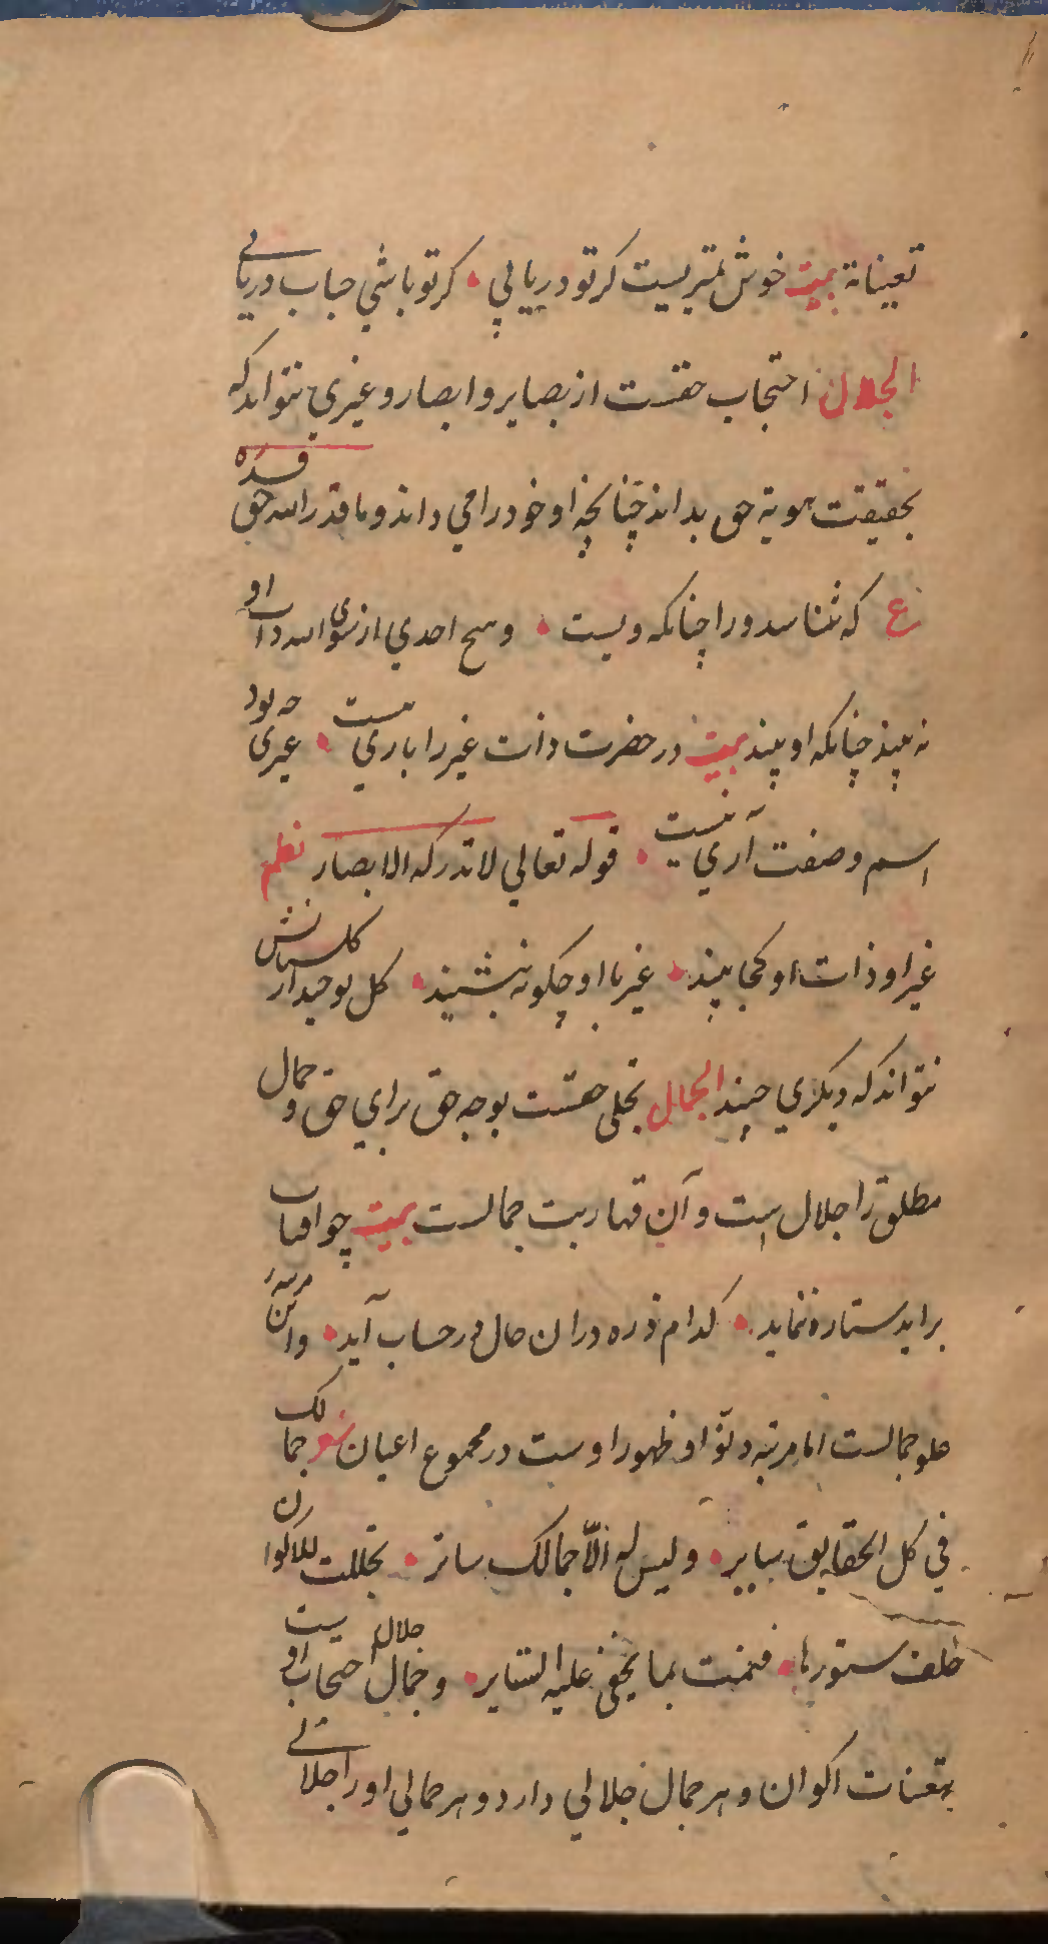 تعیناته بیت خوش نمتریست کرتو دریایی • کرتو باشی حباب دریایی
الجلال احتجاب حقست از بصایر و ابصار و غیری نتواند که
بحقیقت هویة حق بداند چنانچه او خود را می داند وما قدر الله حق قدره
ع که شناسد ورا چنانکه ویست • وهیح احدی از سوی الله ذات او
نه بیند چنانکه او بیند بیت در حضرت ذات غیر را باری نیست • غیری چه بود
اسم وصفت آری نیست • قوله تعالی لا تدرکه الابصار نظم
غیر او ذات او کجا بیند • غیر با او چکونه بنشیند • کل توحید از کلستانش
نتواند که دیکری چیند الجمال تجلی حقست بوجه حق برای حق وجمال
مطلق را جلال است و آن قهاریت جمالست بیت چو افتاب
براید ستاره ننماید • کدام ذره دران حال در حساب آید • واین مرتبه
علو جمالست اما مرتبه دنو او ظهور اوست در مجموع اعیان شعر جمالک
فی کل الحقایق سایر • ولیس له الا جمالک ساتر • تجللت للاکوان
خلف ستورها • فنمت بما یخفی علیه الستایر • وجمال جلال احتجاب اویست
بتعینات اکوان و هر جمال جلالی دارد و هر جمالی او را جلالی